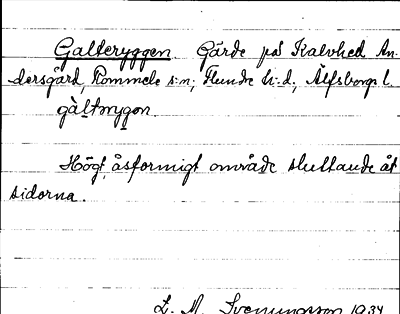 Galteryggen. Gärde på Kalvhed An-
dersgård, Rommele s:n; Flundre h:d., Älfsborgs l.
gàltrygon.
Högt, åsformigt område sluttande åt
sidorna.
L. M. Svenungsson 1934